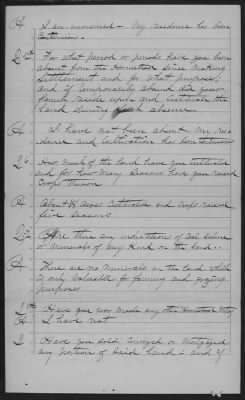 A I am unmarried - My residence has been
Continuous.
Q For what period or periods have you been
absent from the Homestead since making
Settlement and for what purpose,
and if temporarily absent did your
family reside upon and cultivate the
land during such absence
A I have not been absent My resi
dence and Cultivation has been Continuous
Q How much of the land have you cultivated
and for how many seasons have you raised
Crops thereon
A About 18 acres Cultivated and Crops raised
five seasons
Q Are there any indications of Coal Saline
or minerals of any Kind on the land
A There are no minerals on the land which
is only valuable for farming and grazing
purposes
Q Have you ever made any other Homestead Entry
A I have not
Q Have you sold Conveyed or Mortgaged
any portion of said land & and if